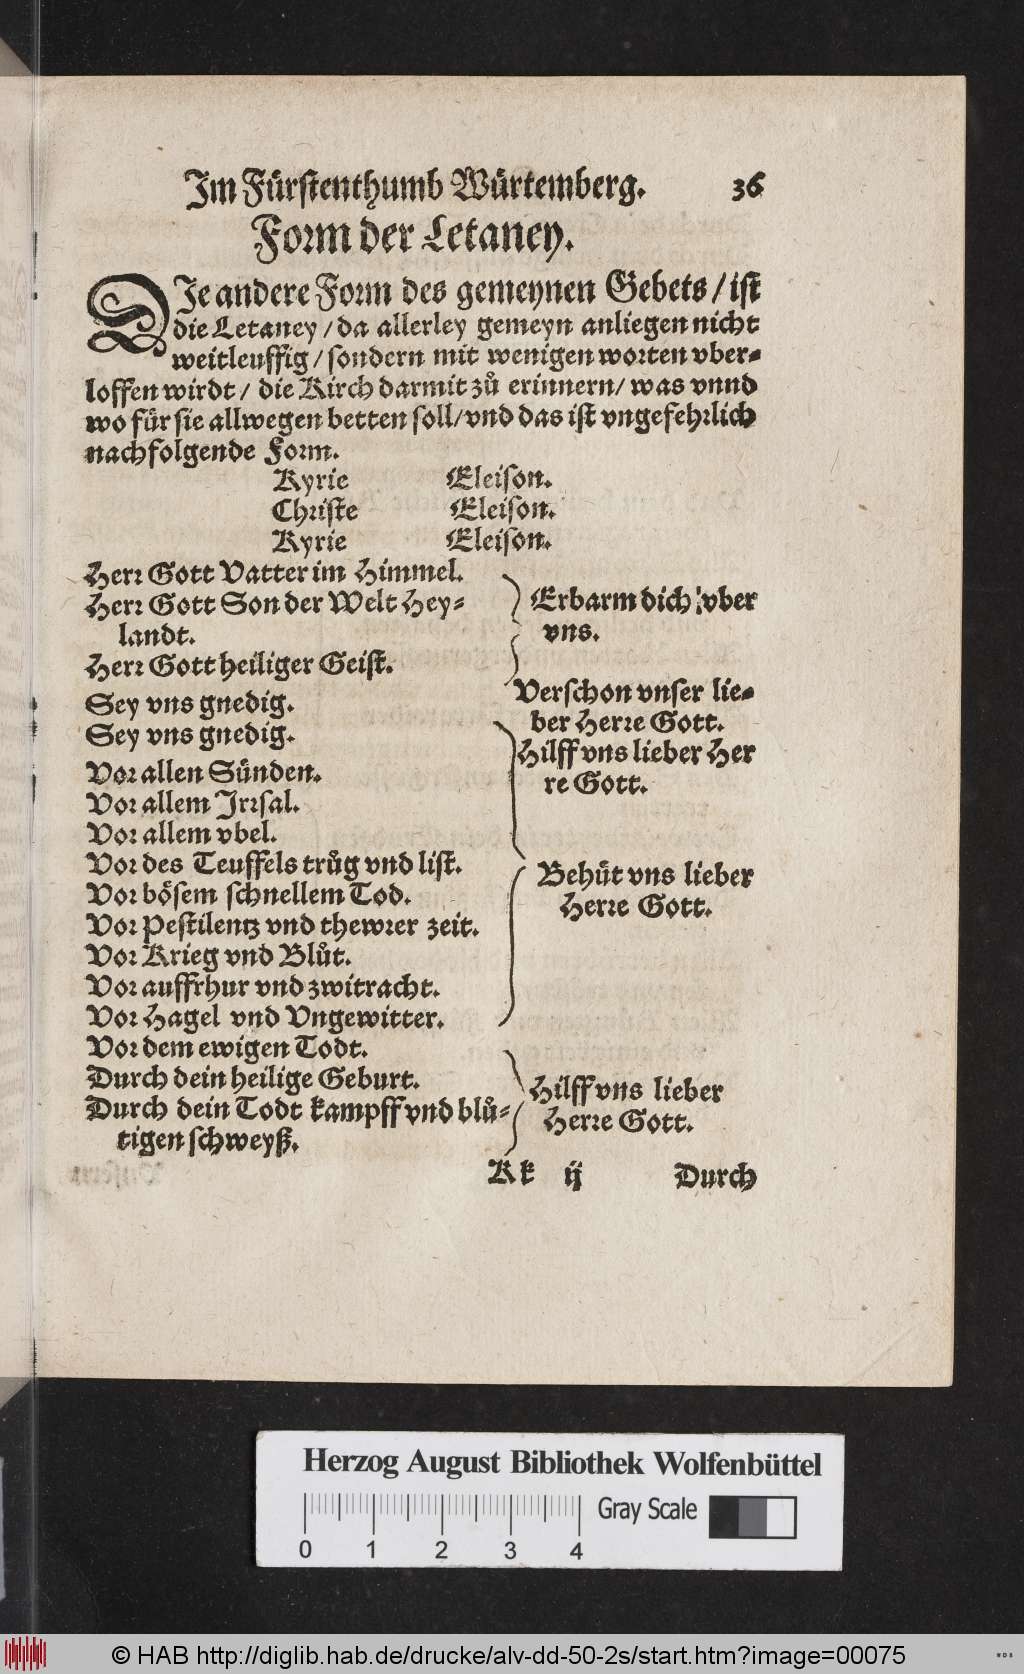 Im Fürstenthumb Würtemberg. 36
Form der Letaney.
DIe andere Form des gemeynen Gebets / ist
die Letaney / da allerley gemeyn anliegen nicht
weitleuffig / sondern mit wenigen worten vber-
loffen wirdt / die Kirch darmit zů erinnern / was vnnd
wo für sie allwegen betten soll / vnd das ist vngefehrlich
nachfolgende Form.
Kyrie Eleison.
Christe Eleison.
Kyrie Eleison.
Herr Gott Vatter im Himmel.
Herr Gott Son der Welt Hey-
landt.
Herr Gott heiliger Geist.
Erbarm dich vber
vns.
Sey vns gnedig.
Sey vns gnedig.
Verschon vnser lie-
ber Herre Gott.
Hilff vns lieber Her
re Gott.
Vor allen Sünden.
Vor allem Jrrsal.
Vor allem vbel.
Vor des Teuffels trůg vnd list.
Vor bösem schnellem Tod.
Vor Pestilentz vnd thewrer zeit.
Vor Krieg vnd Blůt.
Vor auffrhur vnd zwitracht.
Vor Hagel vnd Vngewitter.
Vor dem ewigen Todt.
Behüt vns lieber
Herre Gott.
Durch dein heilige Geburt.
Durch dein Todt kampff vnd blů-
tigen schweyß.
Hilff vns lieber
Herre Gott.
Kk ij Durch
Herzog August Bibliothek Wolfenbüttel
0 1 2 3 4 Gray Scale
© HAB http://diglib.hab.de/drucke/alv-dd-50-2s/start.htm?image=00075